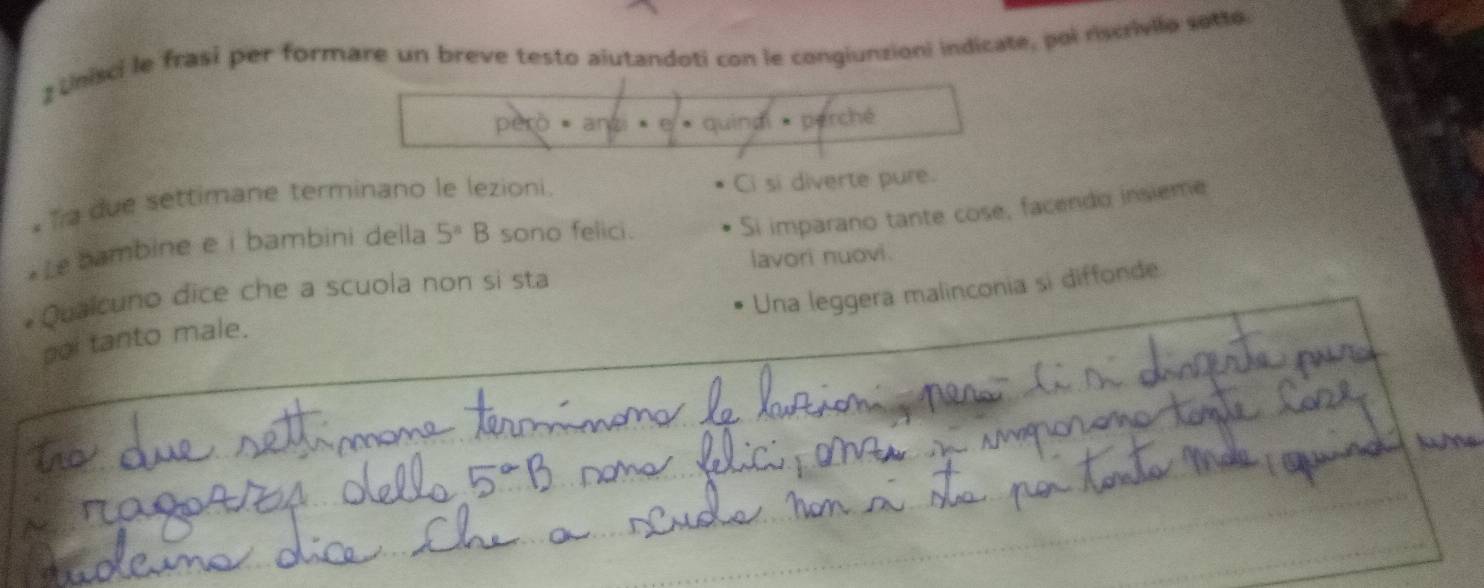 2 Unisci le frasi per formare un breve testo aiutandoti con le congiunzioni indicate, poi riscrivilo sotto.
però • anzi • e • quindi • perché
• Tra due settimane terminano le lezioni.
• Le bambine e i bambini della 5ª B sono felici.
• Qualcuno dice che a scuola non si sta
poi tanto male.
• Ci si diverte pure.
• Si imparano tante cose, facendo insieme
lavori nuovi.
• Una leggera malinconia si diffonde
tra due settimane terminano le lezioni, però ci si diverte pure
i ragazzi della 5ª B sono felici, anzi si imparano tante cose,
qualcuno dice che a scuola non si sta poi tanto male, quindi una